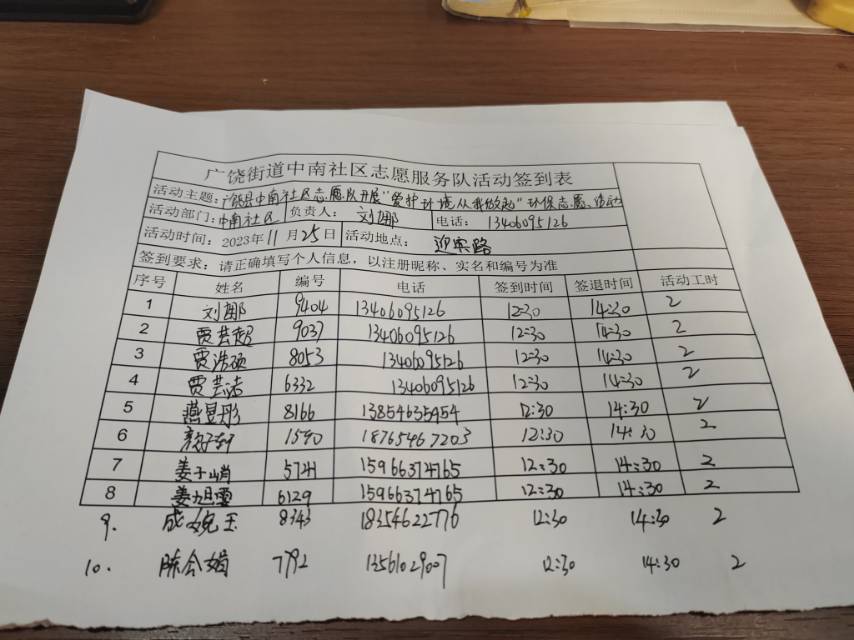 广饶街道中南社区志愿服务队活动签到表
活动主题：广饶县中南社区志愿队开展"爱护环境从我做起"环保志愿、活动
活动部门：中南社区 负责人：刘娜 电话：13406095126
活动时间：2023年11月25日 活动地点：迎宾路
签到要求：请正确填写个人信息，以注册昵称、实名和编号为准
序号 姓名 编号 电话 签到时间 签退时间 活动工时
1 刘娜 9404 13406095126 12:30 14:30 2
2 贾芸超 9037 13406095126 12:30 14:30 2
3 贾浩硕 8053 13406095126 12:30 14:30 2
4 贾芸洁 6332 13406095126 12:30 14:30 2
5 燕昱彤 8166 13854635454 12:30 14:30 2
6 1540 18765467203 12:30 14:30 2
7 姜子峭 5741 15966374765 12:30 14:30 2
8 姜旭雯 6129 15966374765 12:30 14:30 2
9. 成婉玉 8343 18354622776 12:30 14:30 2
10. 陈会娟 7792 13561029007 12:30 14:30 2